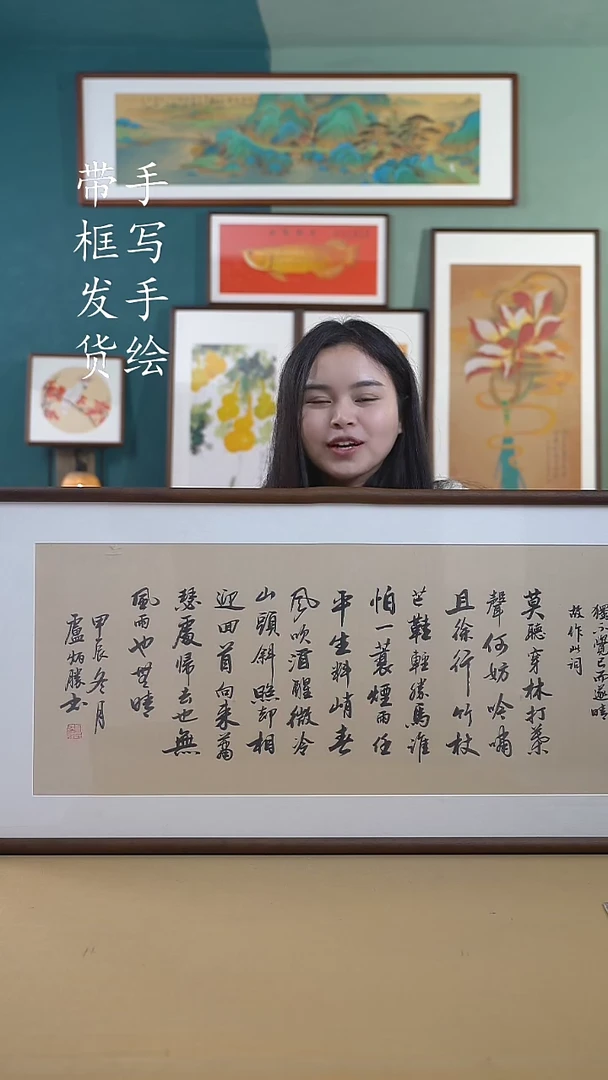 手写手绘
带框发货
獨不覺已而遂晴
故作此词
莫聽穿林打葉
聲何妨吟嘯
且徐行竹杖
芒鞋輕勝馬誰
怕一蓑煙雨任
平生料峭春
風吹酒醒微冷
山頭斜照却相
迎回首向来蕭
瑟處歸去也無
風雨也無晴
甲辰冬月
盧炳勝书